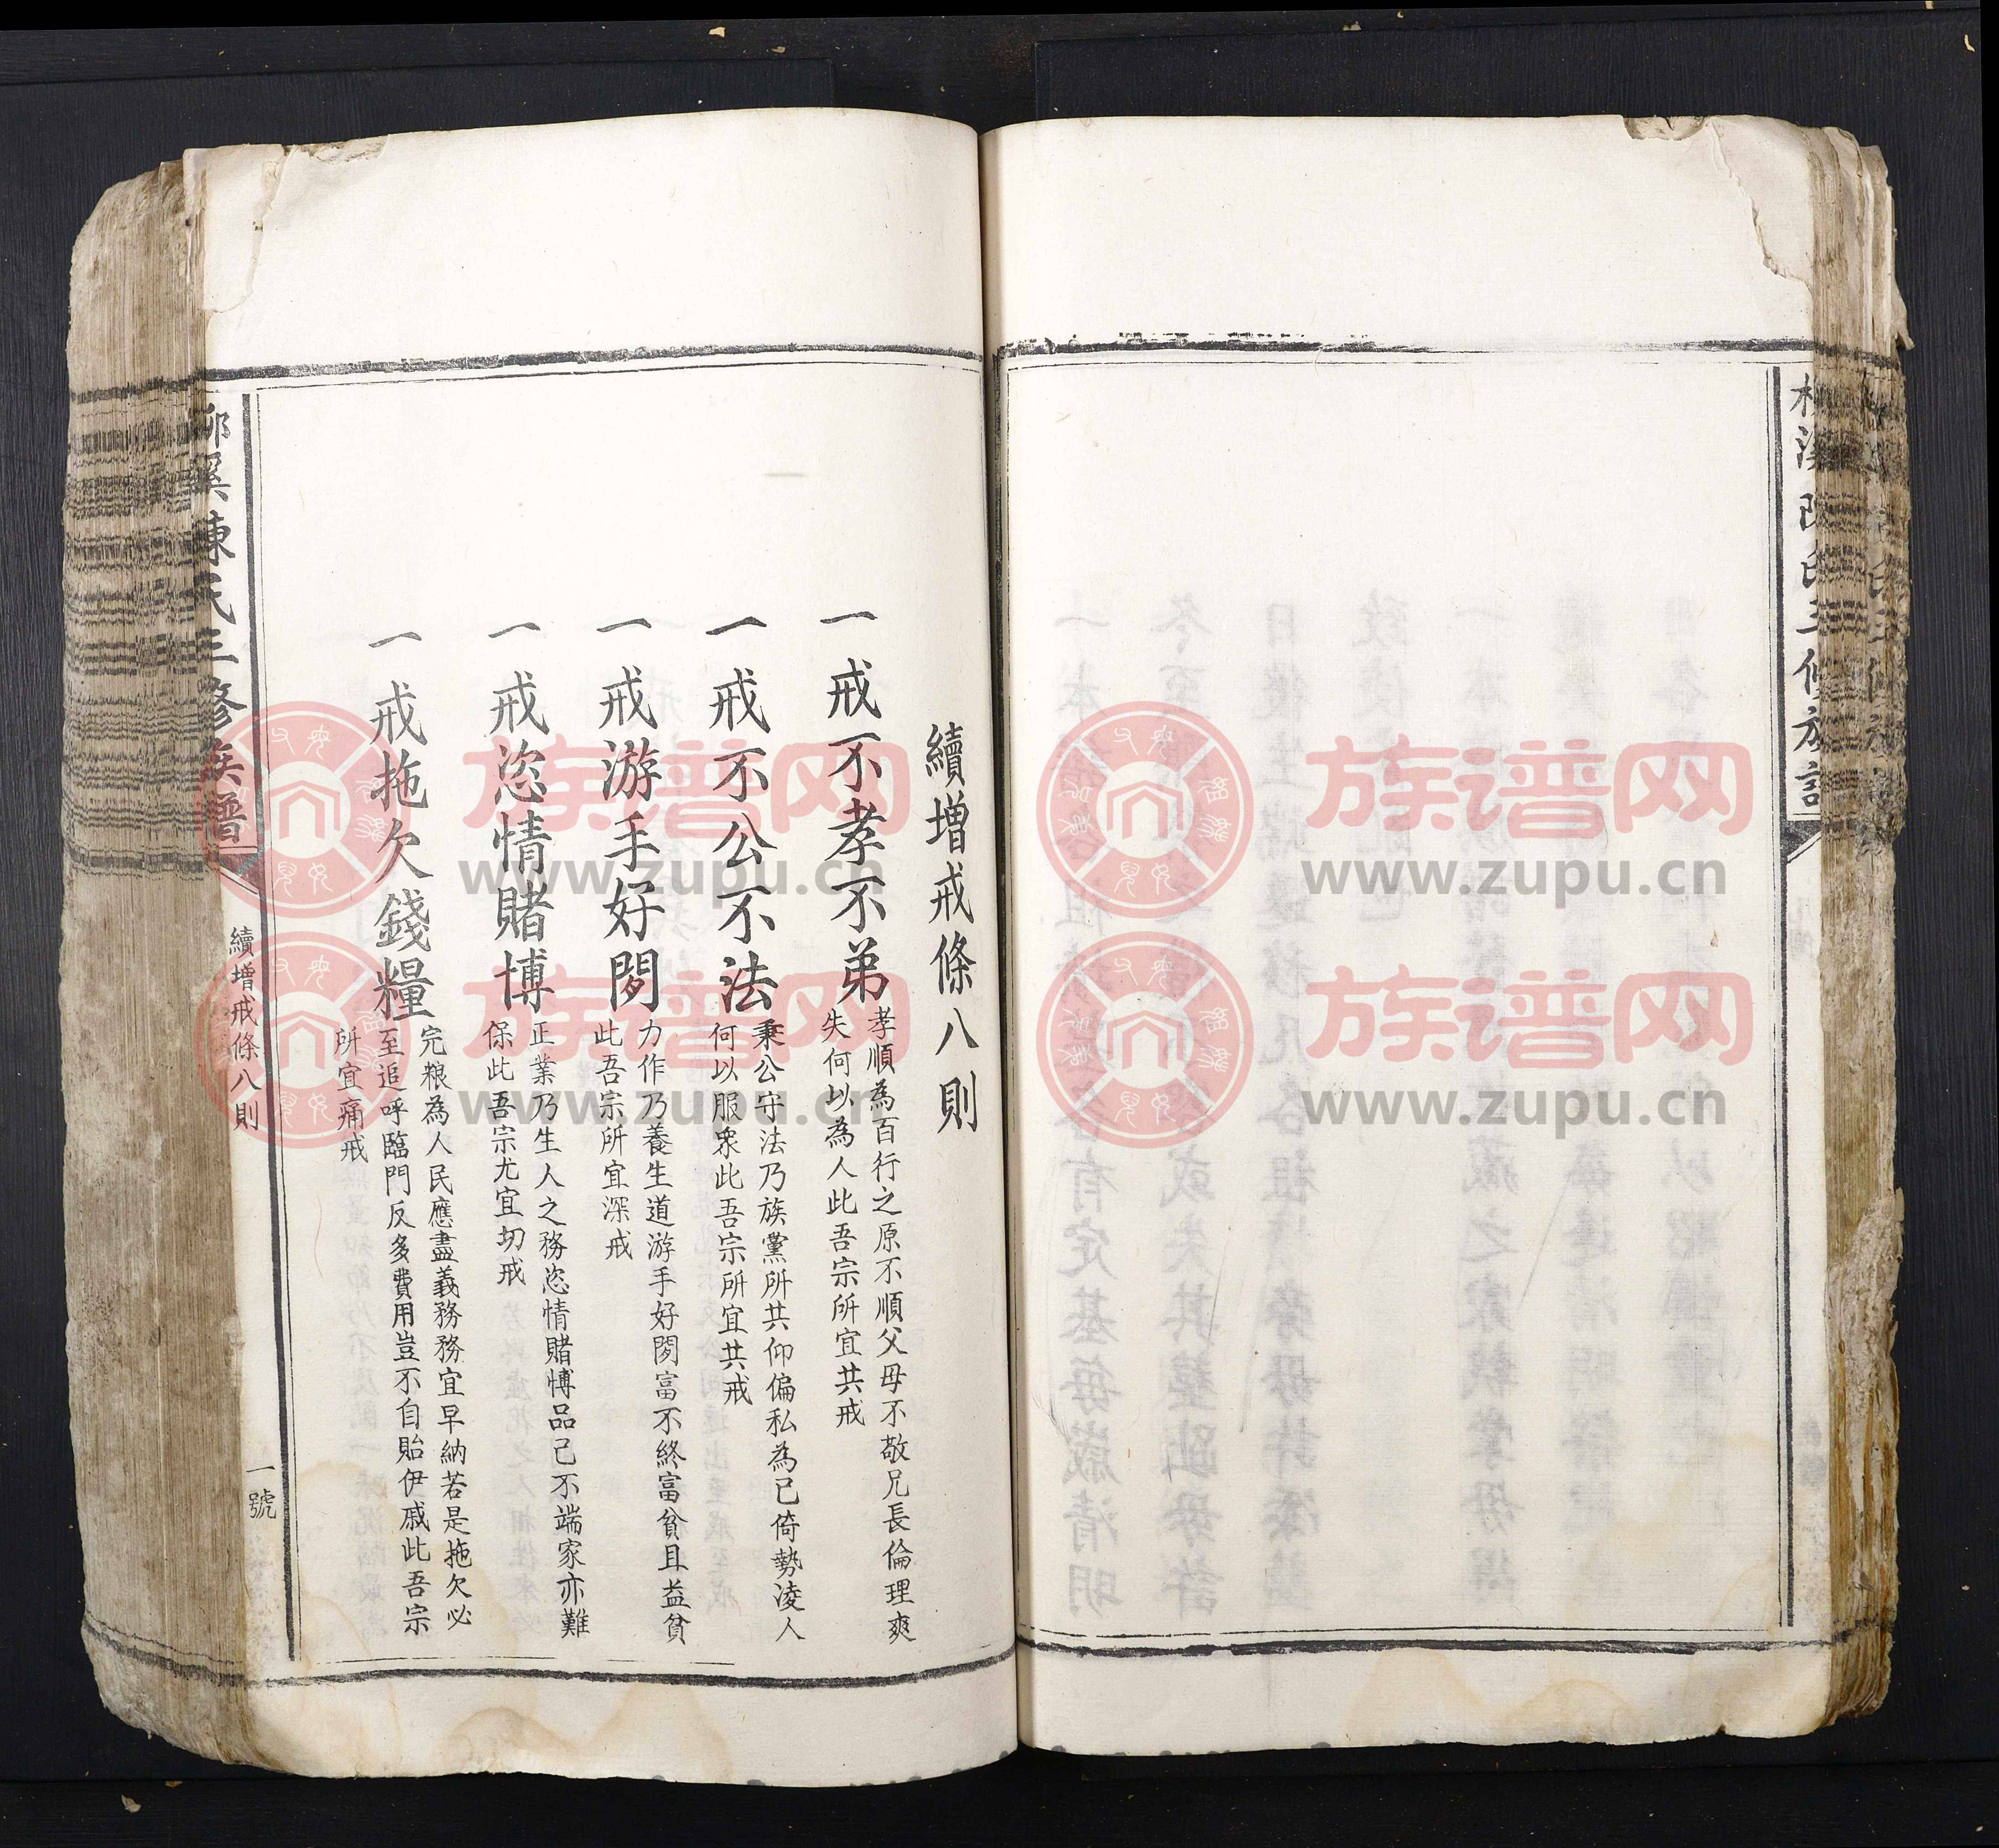 續增戒條八則
一戒不孝不弟
孝順為百行之原不順父母不敬兄長倫理爽
失何以為人此吾宗所宜共戒
一戒不公不法
秉公守法乃族黨所共仰偏私為已倚勢凌人
何以服衆此吾宗所宜共戒
一戒游手好閒
力作乃養生道游手好閒富不終富貧且益貧
此吾宗所宜深戒
一戒恣情賭博
正業乃生人之務恣情賭博品已不端家亦難
保此吾宗尤宜切戒
一戒拖欠錢糧
完粮為人民應盡義務務宜早納若是拖欠必
至追呼臨門反多費用豈不自貽伊戚此吾宗
所宜痛戒
柳溪陳氏三修族譜
續增戒條八則
一號
族谱网
www.zupu.cn
族谱网
www.zupu.cn
族谱网
www.zupu.cn
族谱网
www.zupu.cn